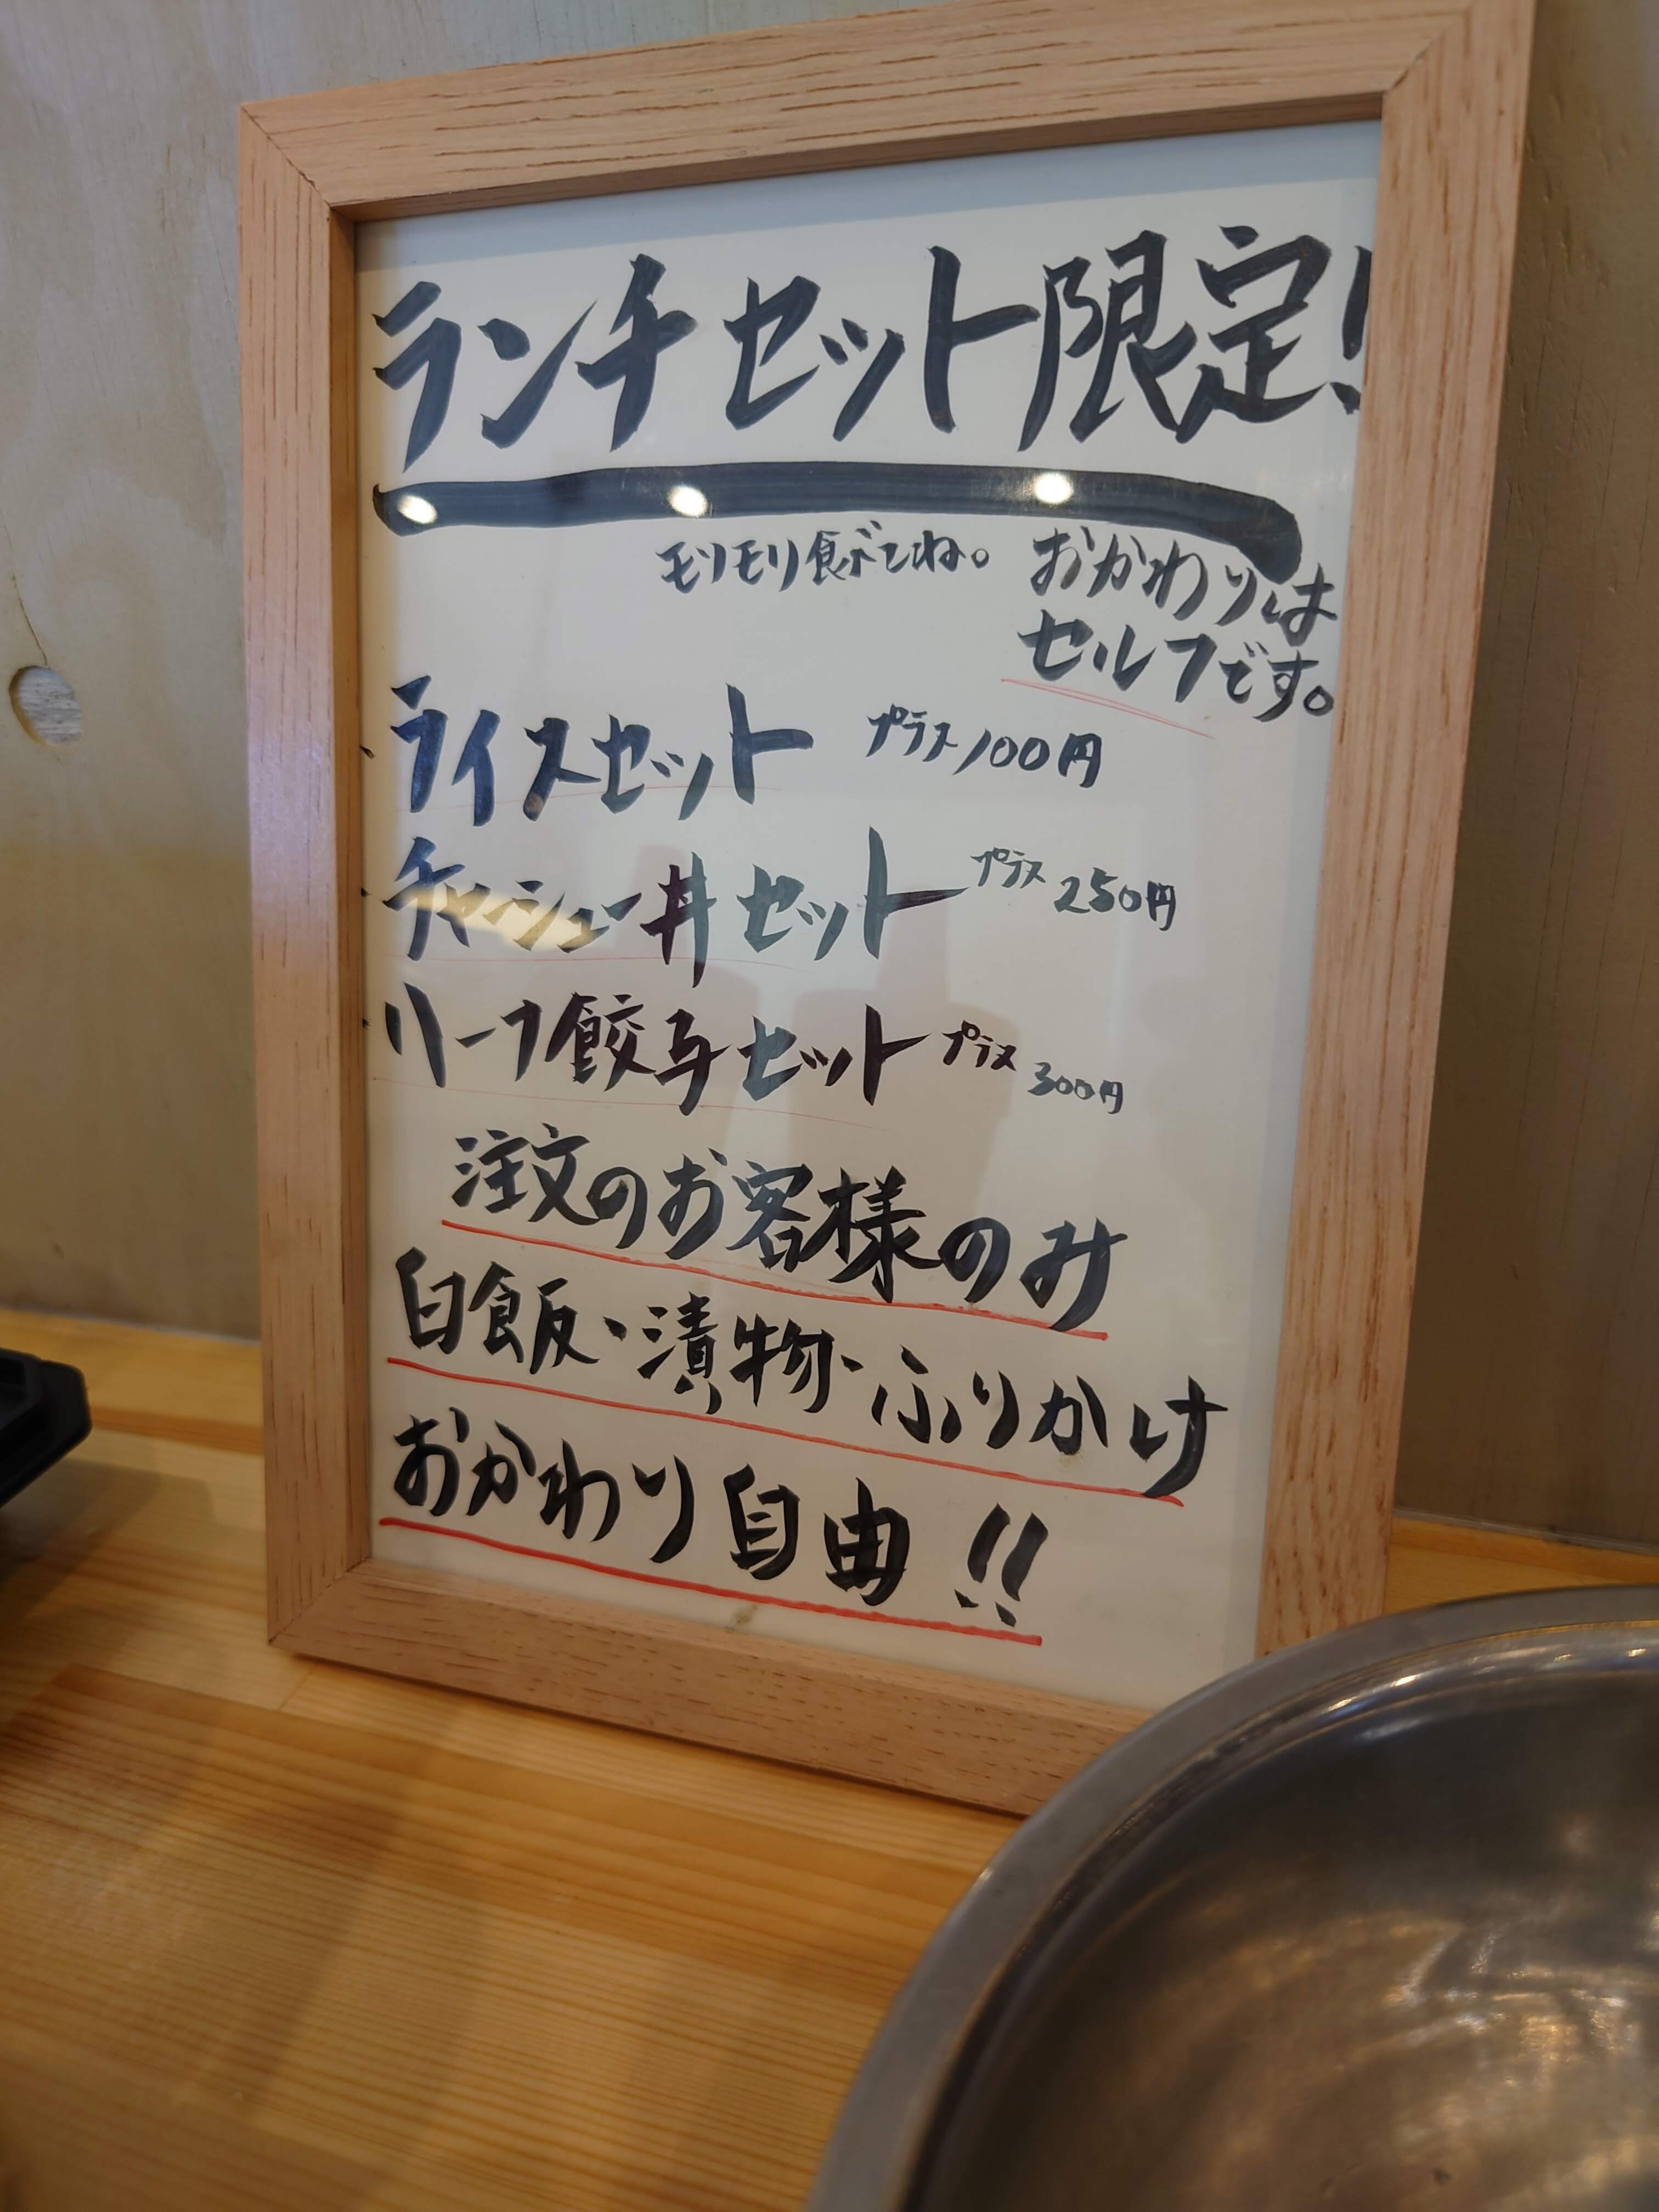 ランチセット限定!
モリモリ食べてね。
おかわりは
セルフです。
ライスセット プラス100円
チャーシュー丼セット プラス250円
ハーフ餃子セット プラス300円
注文のお客様のみ
白飯・漬物・ふりかけ
おかわり自由!!